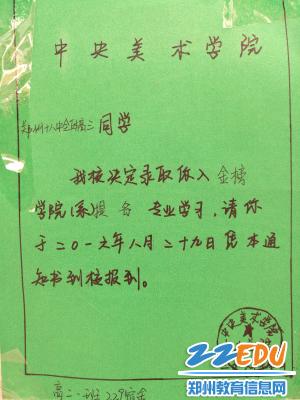 中央美术学院
郑州十八中全体高三同学
我校决定录取你入金榜
学院(系)提名专业学习,请你
于二〇一六年八月二十九日凭本通
知书到校报到。
中央美术学院
高三一班229宿舍
22EDU
郑州教育信息网